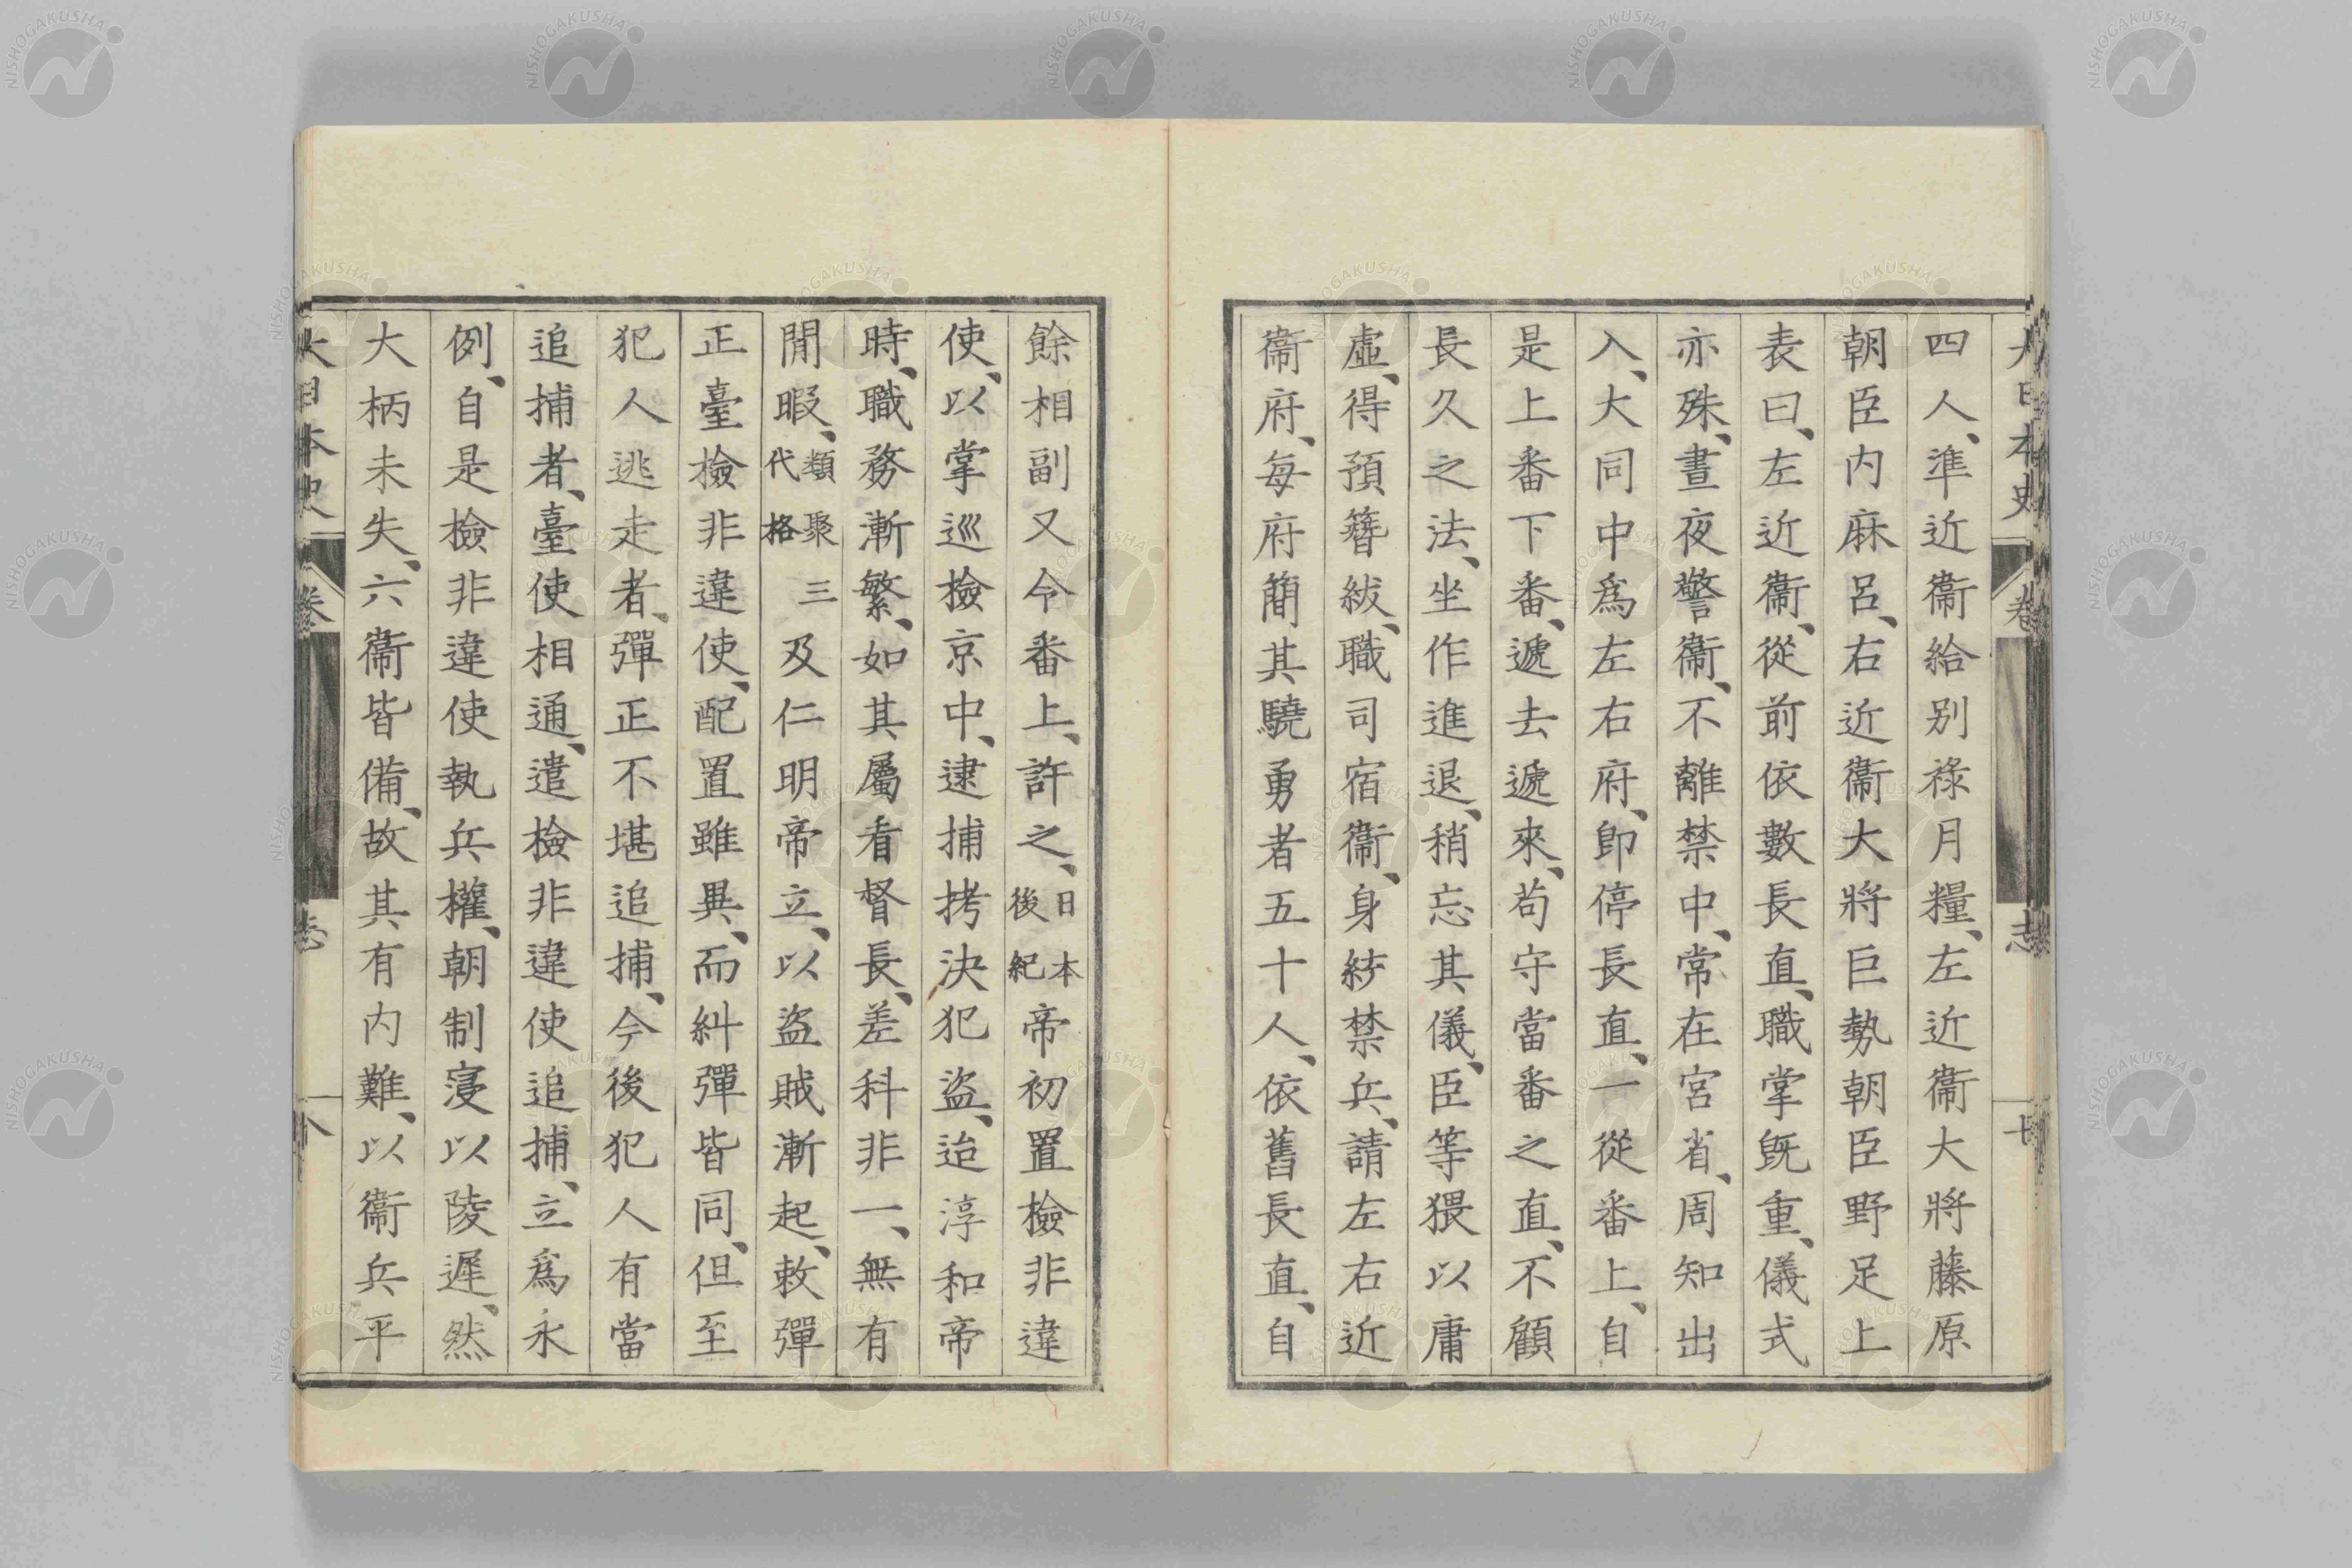 大日本史 卷 志
四人、準近衞給別祿月糧、左近衞大將藤原
朝臣内麻呂、右近衞大將巨勢朝臣野足上
表曰、左近衞、從前依數長直、職掌既重、儀式
亦殊、晝夜警衞、不離禁中、常在宮省、周知出
入、大同中爲左右府、卽停長直、一從番上、自
是上番下番、遞去遞來、苟守當番之直、不顧
長久之法、坐作進退、稍忘其儀、臣等猥以庸
虛、得預簪紱、職司宿衞、身紆禁兵、請左右近
衞府、每府簡其驍勇者五十人、依舊長直、自
餘相副又令番上、許之、日本後紀帝初置檢非違
使、以掌巡檢京中、逮捕拷決犯盜、迨淳和帝
時、職務漸繁、如其屬看督長、差科非一、無有
閒暇、類聚三代格及仁明帝立、以盜賊漸起、敕彈
正臺檢非違使、配置雖異、而糾彈皆同、但至
犯人逃走者、彈正不堪追捕、今後犯人有當
追捕者、臺使相通、遣檢非違使追捕、立爲永
例、自是檢非違使執兵權、朝制寖以陵遲、然
大柄未失、六衞皆備、故其有内難、以衞兵平
大日本史 卷 志 八
NISHOGAKUSHA